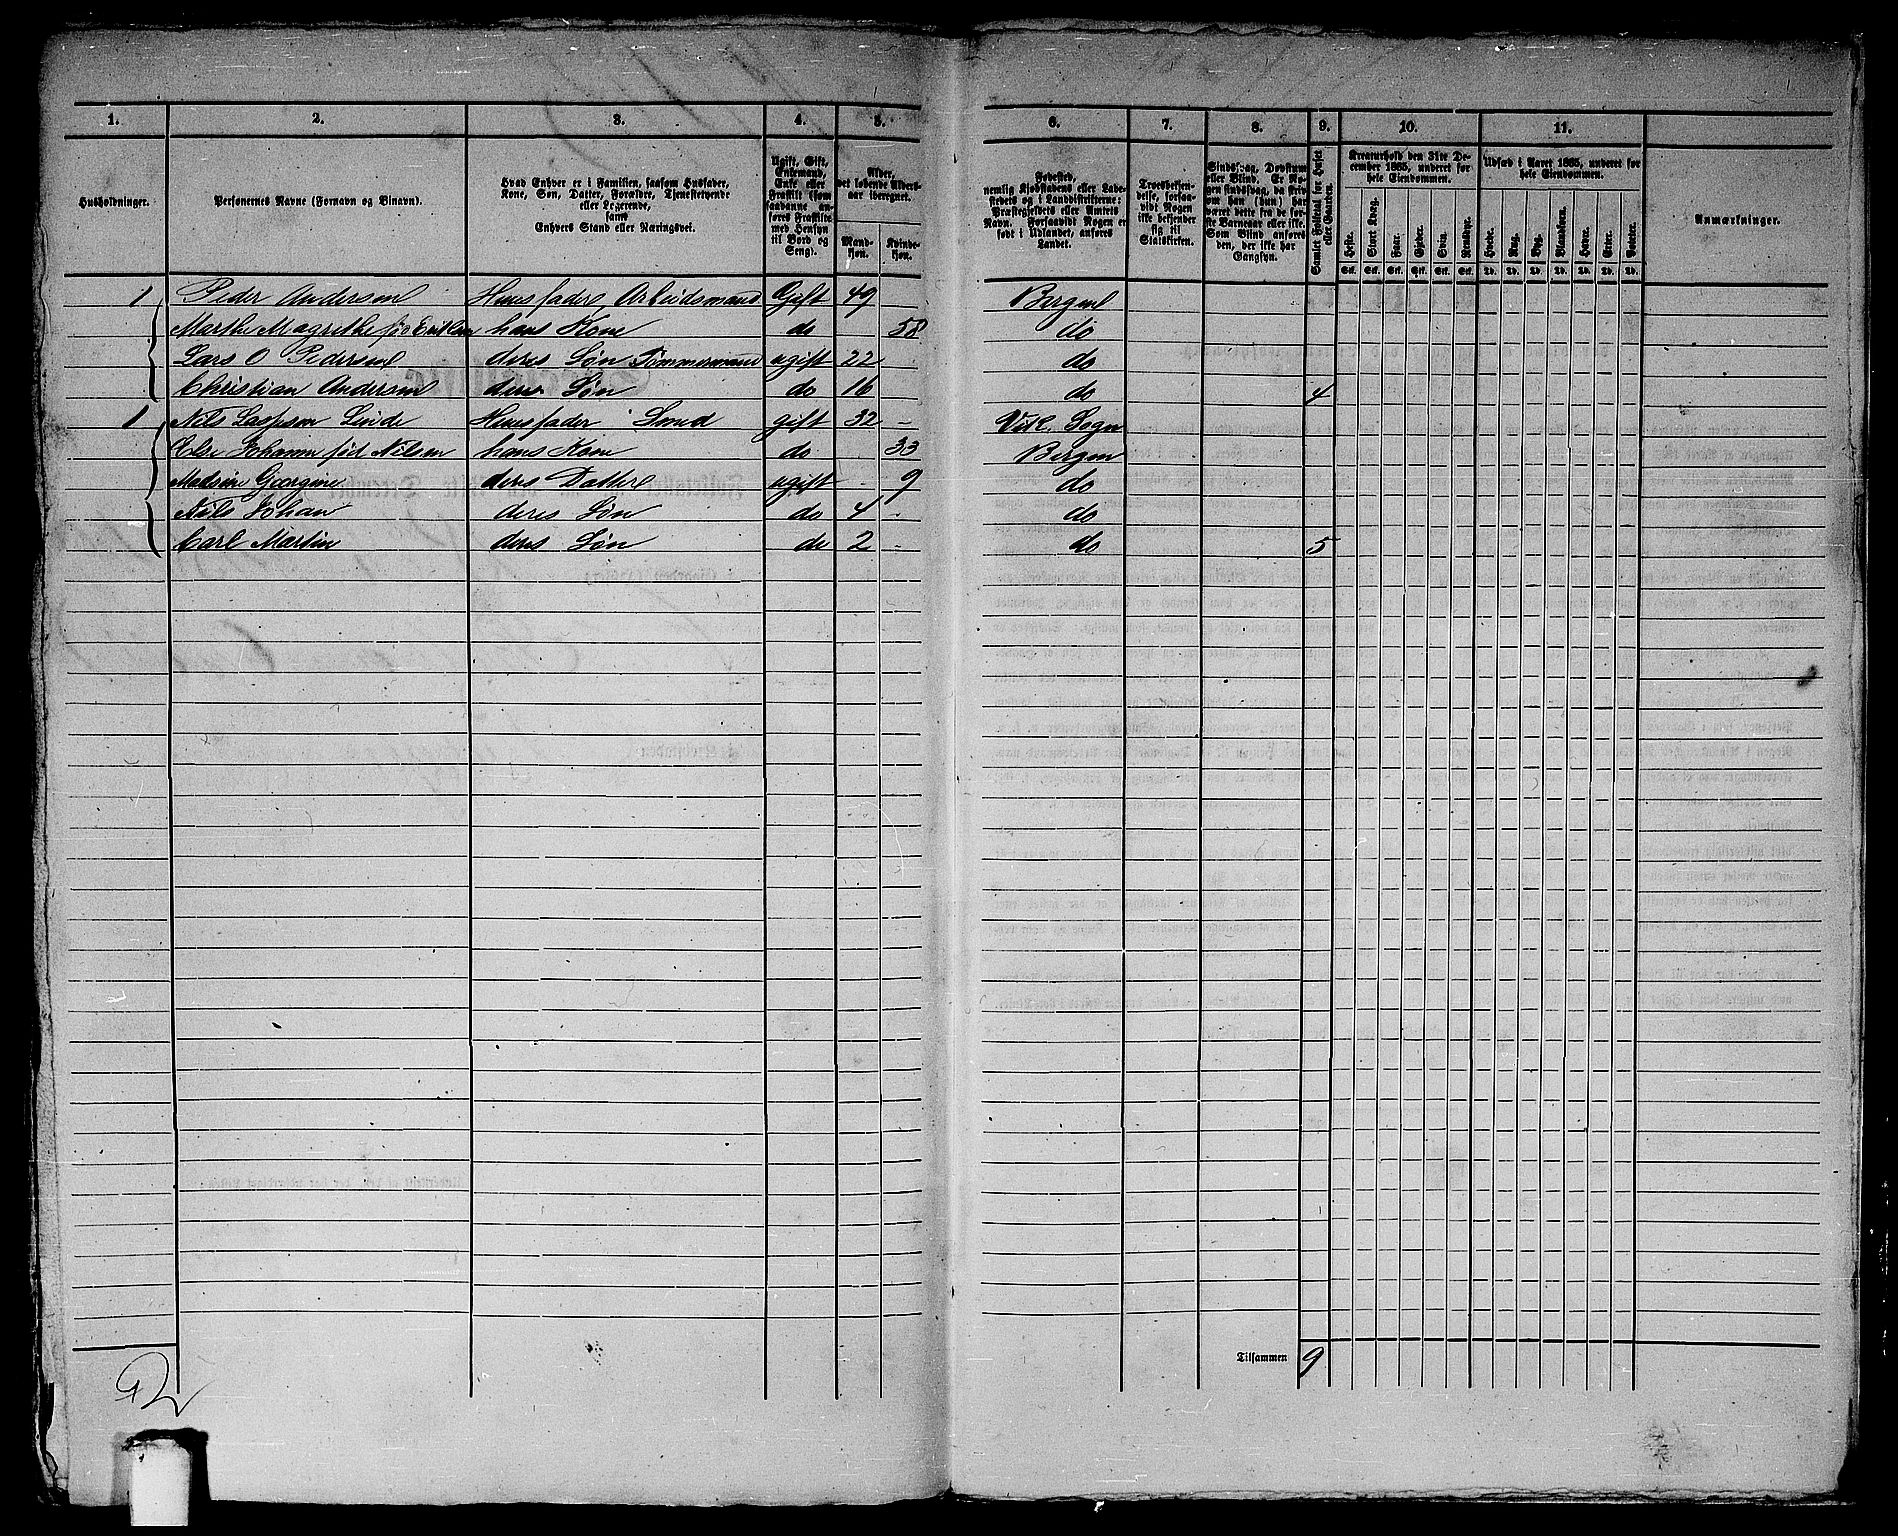 1. 2. 3. 4. 5. 6. 7. 8. 9. 10. 11.
Husholdninger.
Personernes Navne (Fornavn og Binavn).
Hvad Enhver er i Familien, saasom Husfader,
Kone, Søn, Datter, Forældre, Tjenestetyende
eller Logerende,
samt
Enhvers Stand eller Næringsvei.
Ugift, Gift,
Enkemand,
Enke eller
Fraskilt (som
saadanne an-
føres Fraskilte
med Hensyn
til Bord og
Seng).
Alder,
det løbende Alders-
aar iberegnet.
Mand-
kjøn.
Kvinde-
kjøn.
Fødested,
nemlig Kjøbstadens eller Lade-
stedets og i Landdistrikterne:
Præstegjeldets eller Amtets
Navn. Forsaavidt Nogen er
født i Udlandet, anføres
Landet.
Troesbekjen-
delse, forsaa-
vidt Nogen
ikke bekjender
sig til
Statskirken.
Sindssvag, Døvstum
eller Blind. Er No-
gen sindssvag, da skriv
om han (hun) har
været dette fra de før-
ste Barneaar eller ikke.
Som Blind anføres
den, der ikke har
Gangsyn.
Samlet Folketal for Huset
eller Gaarden.
Kreaturhold den 31te De-
cember 1865, underet for
hele Eiendommen.
Heste. Stort Kvæg. Faar. Gjeder. Svin. Rensdyr.
Stk. Stk. Stk. Stk. Stk. Stk.
Udsæd i Aaret 1865, underet for
hele Eiendommen.
Hvede. Rug. Byg. Blandkorn. Havre. Erter. Poteter.
Td. Td. Td. Td. Td. Td. Td.
Anmærkninger.
1 Peder Andersen Huusfader Arbeidsmand Gift 49 Bergen
Marthe Magrethe fød hans Kone do 58 do
Lars O Pedersen deres Søn Tømmermand ugift 22 do
Christian Andersen deres Søn do 16 do 4
1 Nils Linde Huusfader Smed gift 32 - Sogn
Else Johanne fød Nilsen hans Kone do 33 Bergen
Georgine deres Datter ugift 9 do
Nils Johan deres Søn do 4 - do
Carl Martin deres Søn do 2 - do 5
Tilsammen 9